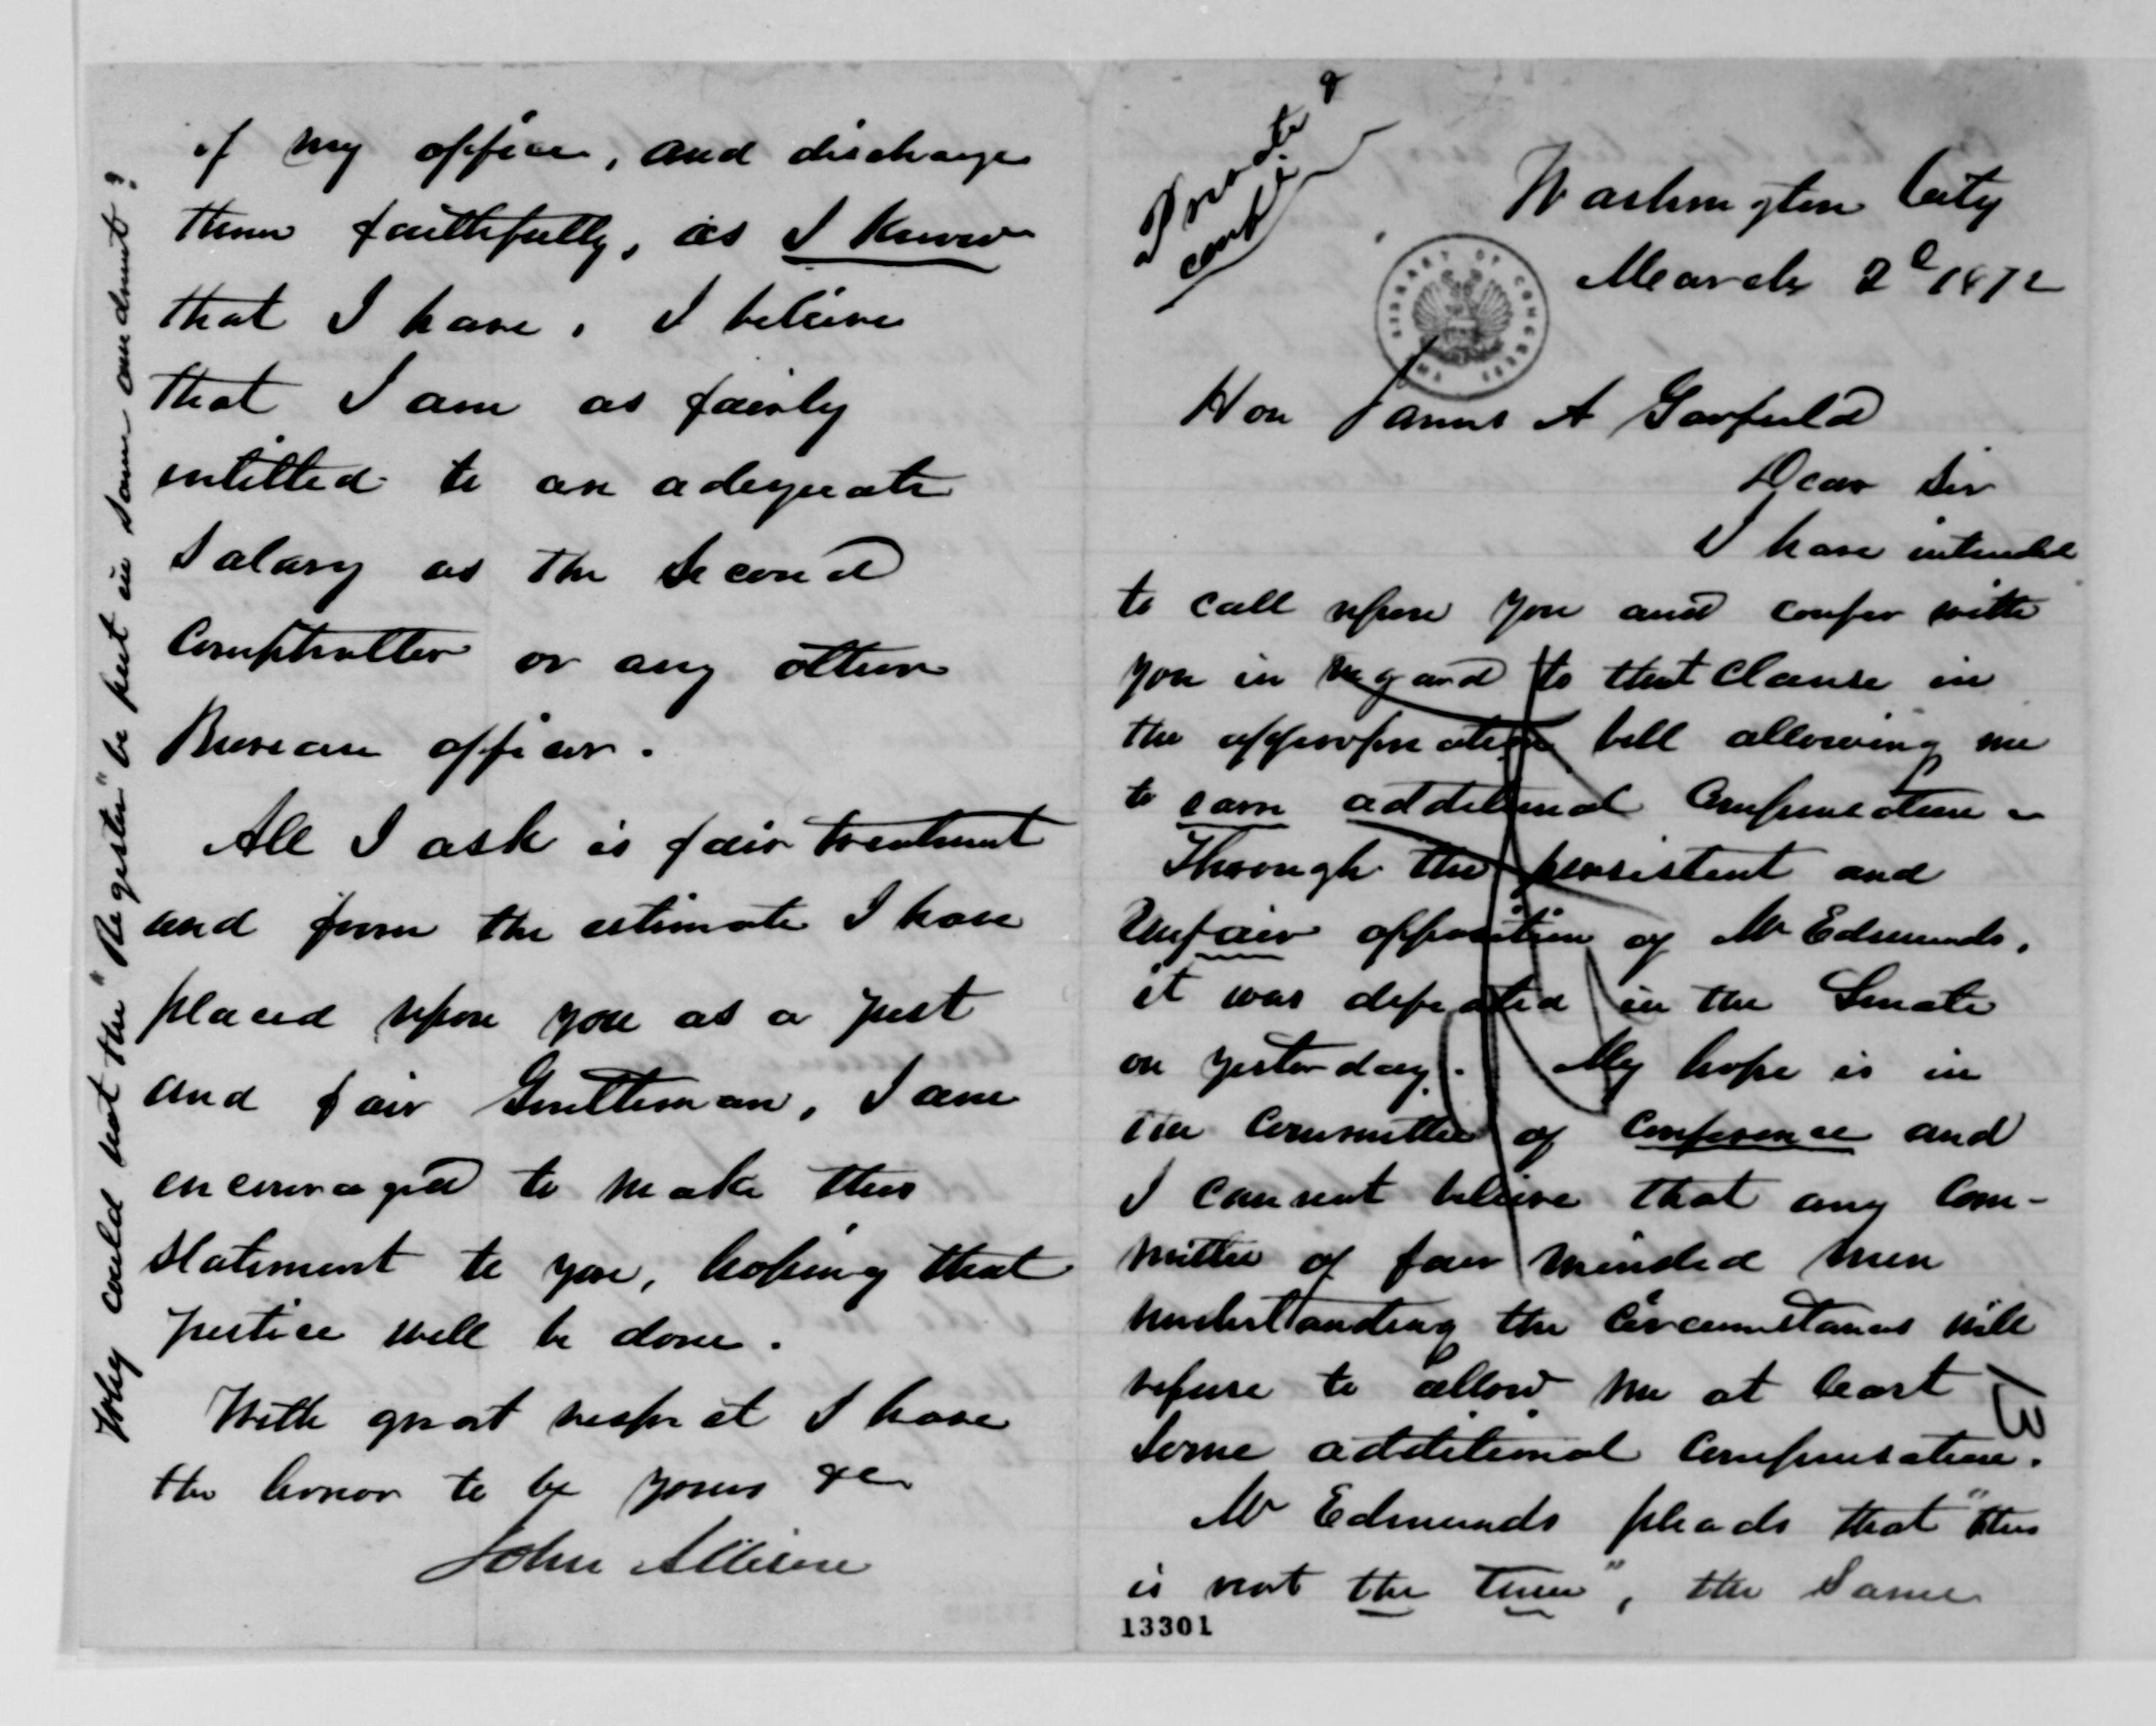 of my office, and discharge
them faithfully, as I know
that I have. I believe
that I am as fairly
intitled to an adequate
Salary as the Second
Comptroller or any other
Bureau officer.
All I ask is fair treatment
and from the estimate I have
placed upon you as a just
and fair Gentleman, I am
encouraged to make this
statement to you, hoping that
justice will be done.
With great respect I have
the honor to be yours &c
John Allison
Why could not the "Register" be put in same amendment?
Private &
Washington City
March 2d 1872
LIBRARY OF CONGRESS
Hon James A Garfield
Dear Sir
I have intended
to call upon you and confer with
you in regard to that clause in
the appropriation bill allowing me
to earn additional compensation
Through the persistent and
Unfair opposition of Mr Edmunds,
it was defeated in the Senate
on yesterday. My hope is in
the Committee of Conference and
I cannot believe that any Com-
mittee of fair minded men
understanding the circumstances will
refuse to allow me at least
some additional compensation.
Mr Edmunds pleads that "this
is not the time", the same
13301